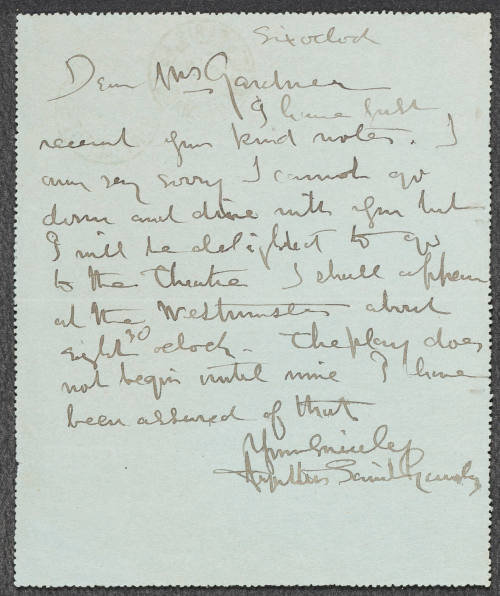 Six oclock
Dear Mrs Gardner
I have just
received your kind notes. I
am very sorry I cannot go
down and dine with you but
I will be delighted to go
to the theatre I shall appear
at the Westminster about
eight 30 oclock - The play does
not begin until nine I have
been assured of that
Yours Sincerely
Augustus Saint Gaudens